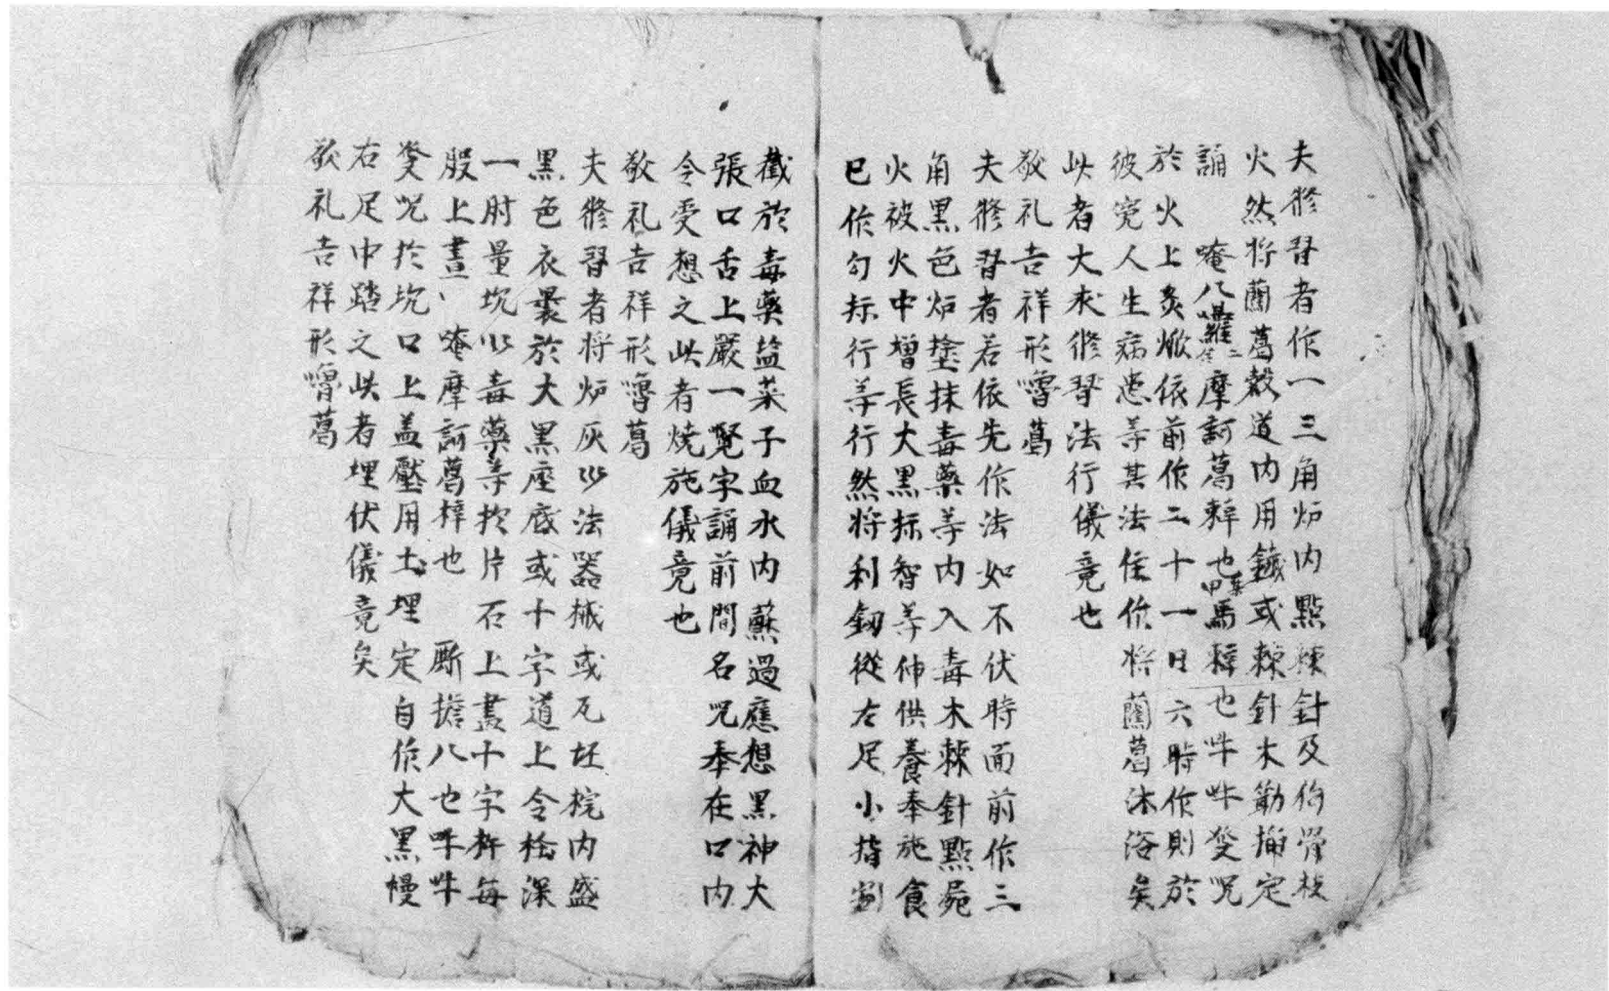 夫修習者作一三角炉内點棘針及伤骨枝
火然将蘭葛穀道内用鐵或棘針木簕揷定
誦 唵八囉二合摩訶葛辢也馬辢也吽吽發呪
於火上炙燉依前作二十一日六時作則於
彼寃人生病患等其法住作将蘭葛沐浴矣
此者大求修習法行儀竟也
敬礼吉祥形嚕葛
夫修習者若依先作法如不伏時面前作三
角黑色炉塗抹毒藥等内入毒木棘針點屍
火被火中增長大黑标智等伸供養奉施食
已作勾标行等行然将利釰從左足小指割
截於毒藥盐菜子血水内蘸過應想黑神大
張口舌上嚴一字誦前間名呪奉在口内
令受想之此者燒施儀竟也
敬礼吉祥形嚕葛
夫修習者将炉灰以法器械或瓦坯椀内盛
黑色衣裹於大黑座底或十字道上令栓深
一肘量坑以毒藥等於片石上畫十字杵每
股上晝唵摩訶葛梓也 厮擔八也吽吽
發呪於坑口上盖壓用土埋定自作大黑慢
右足中踏之此者埋伏儀竟矣
敬礼吉祥形嚕葛